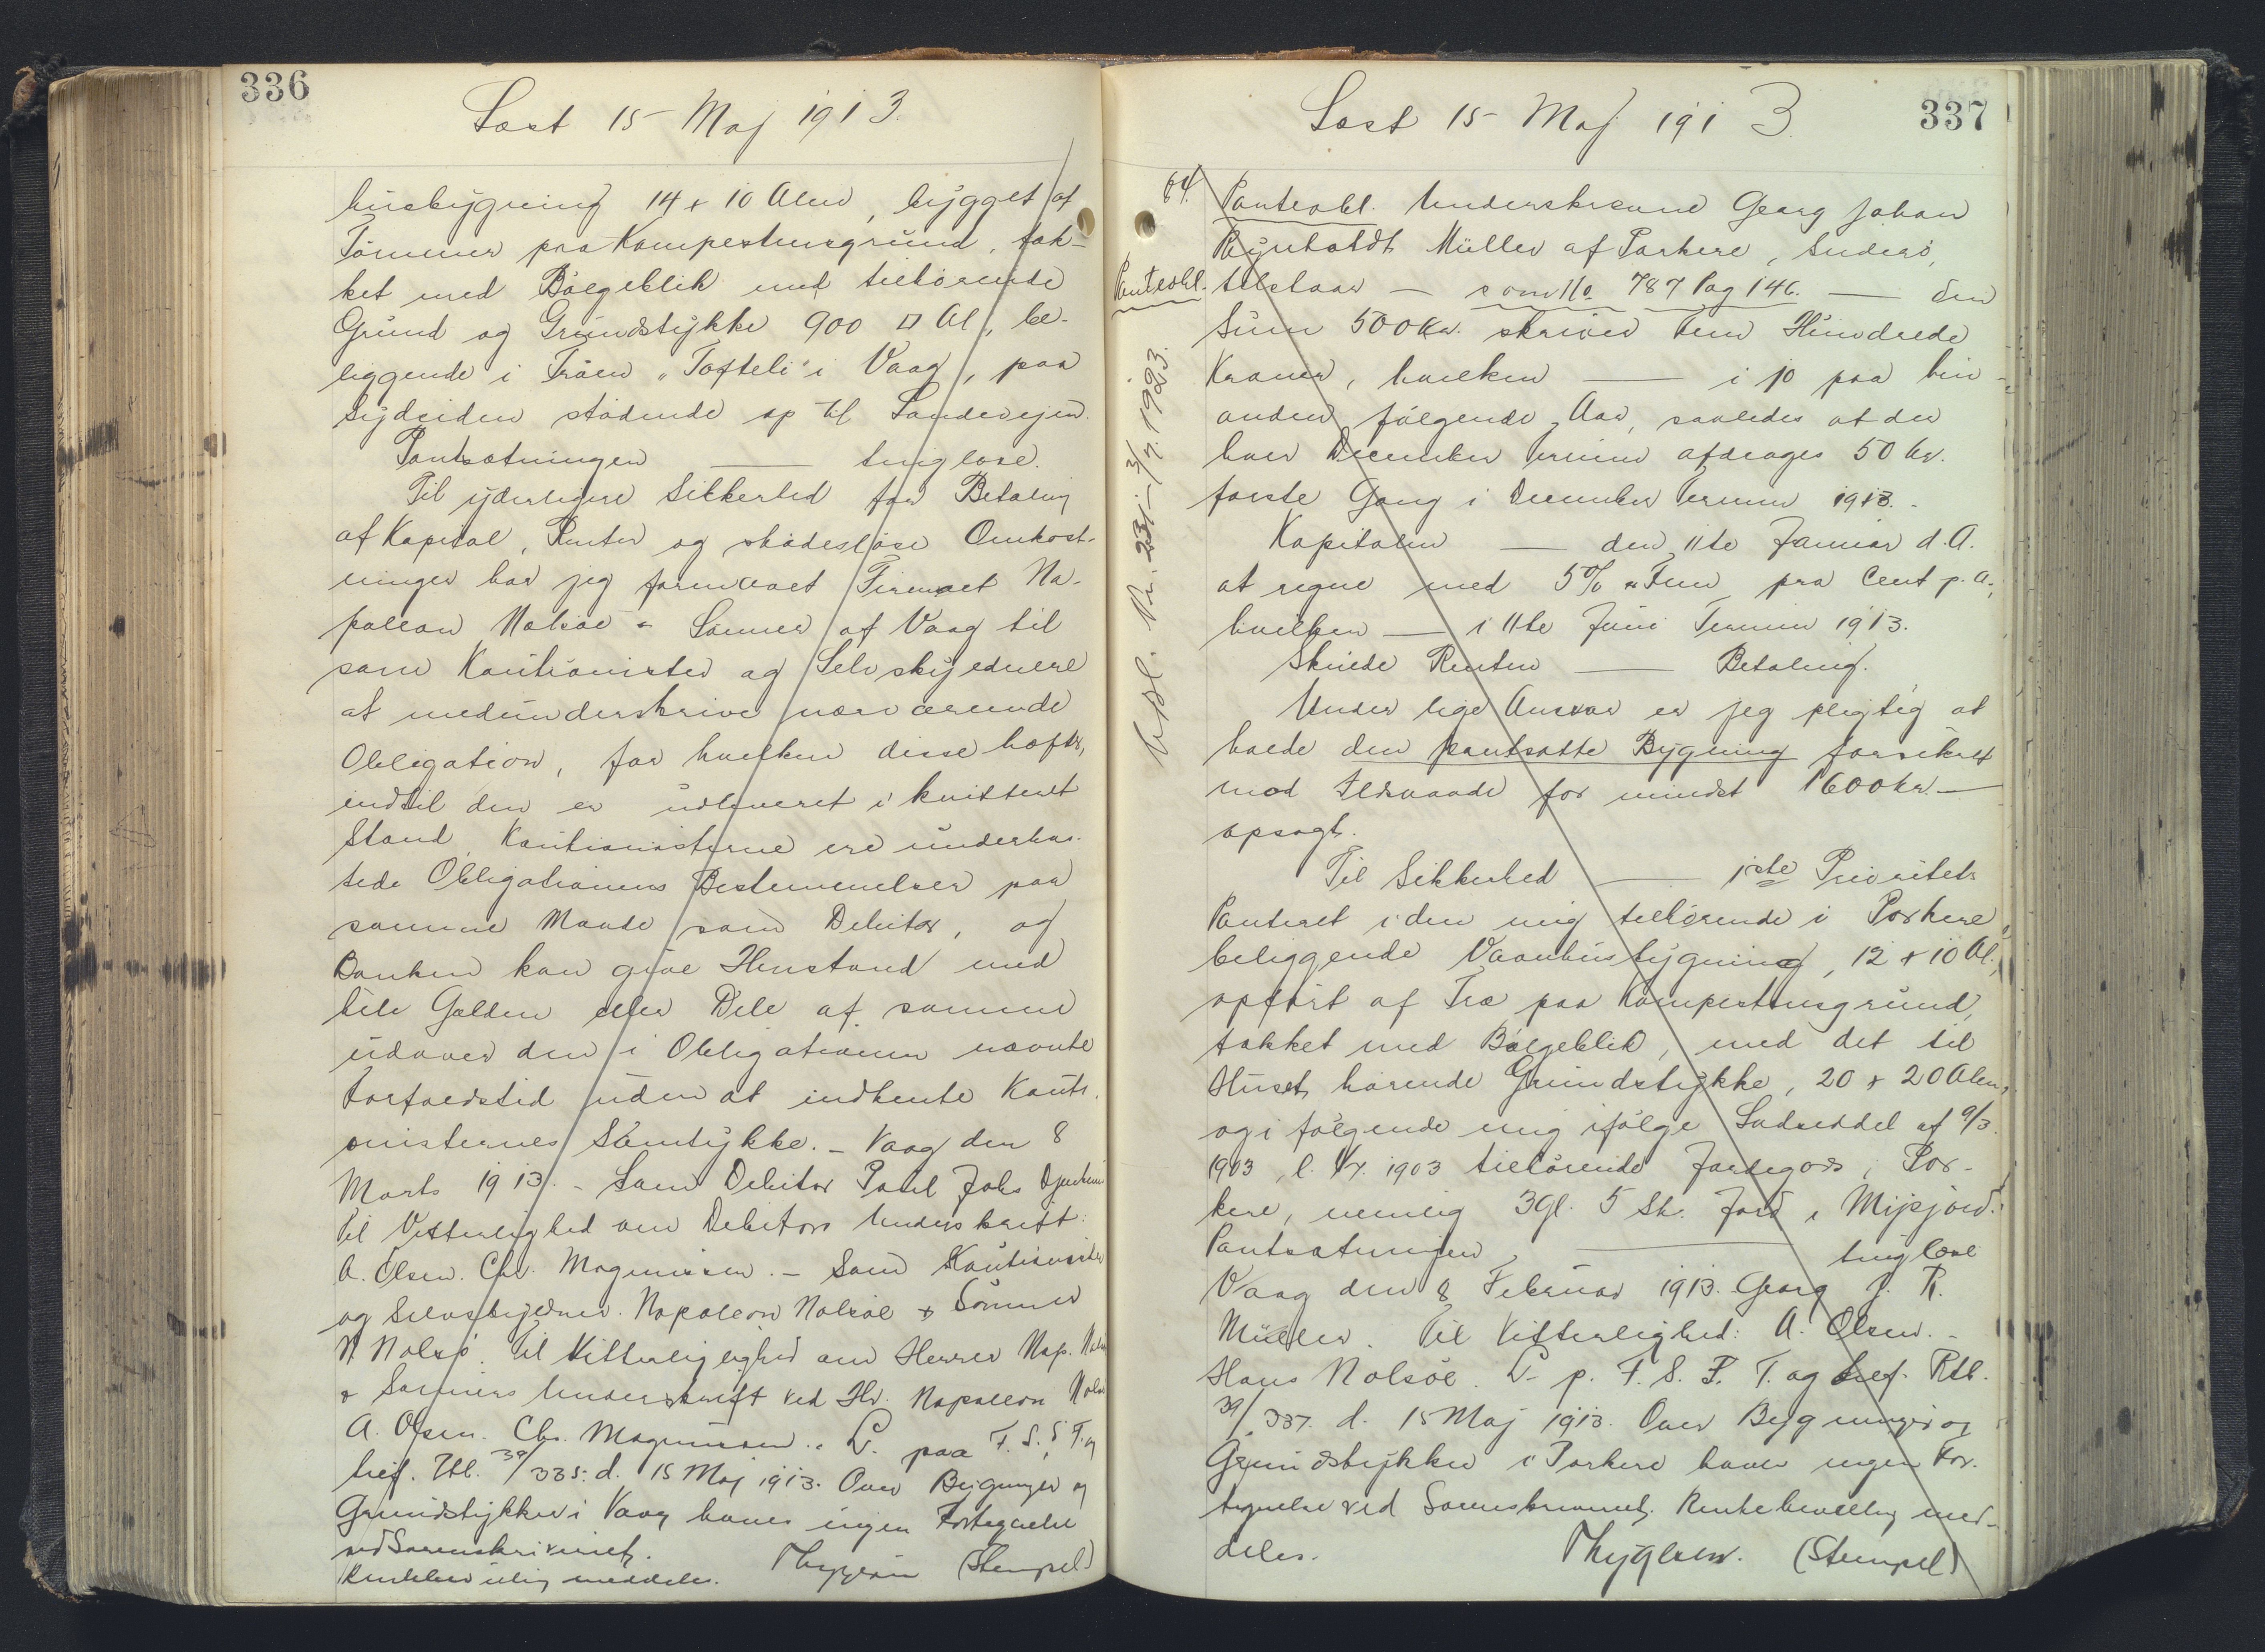 336
Læst 15 Maj 1913.
husbygning 14 x 10 Alen, bygget af
Tømmer paa Kampestensgrund, tæk-
ket med Bølgeblik med tilhørende
Grund og Grundstykke 900 □ Al, be-
liggende i Trøen "Tofteli" i Vaag, paa
Sydsiden stødende op til Landevejen.
Pantsætningen — tinglæse.
Til yderligere Sikkerhed for Betaling
af Kapital, Renter og skadesløse Omkost-
ninger har jeg formaaet Firmaet Na-
poleon Nolsøe & Sønner af Vaag til
som Kautionister og Selvskyldnere
at medunderskrive nærværende
Obligation, for hvilken disse hæfte,
indtil den er udleveret i kvitteret
Stand. Kautionisterne ere underkas-
tede Obligationens Bestemmelser paa
samme Maade som Debitor, og
Banken kan give Henstand med
hele Gælden eller Dele af samme
udover den i Obligationen nævnte
Forfaldstid uden at indhente Kauti-
onisternes Samtykke. - Vaag den 8
Marts 1913. - Som Debitor Poul Johs
Til Vitterlighed om Debitors Underskrift:
A. Olsen. Chr. Magnussen. - Som Kautionister
og Selvskyldner. Napoleon Nolsøe & Sønner
N. Nolsø. Til Vitterlighed om Herrer Nap. Nolsøe
& Sønners Underskrift ved Hr. Napoleon Nolsøe
A. Olsen. Chr. Magnussen. L. paa F. S. S. T. og
bref. Rtl. 39/335. d. 15 Maj 1913. Over Bygninger og
Grundstykker i Vaag haves ingen Fortegnelse
ved Sorenskriveriet.
meddeles. Thygesen (Stempel)
337
Læst 15 Maj 1913.
64. Panteobl. Underskrevne Georg Johan
Reynholdt Müller af Porkere, Suderø,
Panteobl. tilstaar — som No 787 Pag 146. — den
Sum 500 Kr. skriver Fem Hundrede
Kroner, hvilken — i 10 paa hin-
anden følgende Aar, saaledes at der
hver December Termin afdrages 50 Kr.
første Gang i December Termin 1913.
Kapitalen — den 11te Januar d.A.
at regne med 5% "Fem pro Cent p.a.,
hvilken — i 11te Juni Termin 1913.
Skulde Renten — Betaling.
Under lige Ansvar er jeg pligtig at
holde den pantsatte Bygning forsikret
mod Ildsvaade for mindst 1600 Kr. —
opsagt.
Til Sikkerhed — 1ste Prioritets
Panteret i den mig tilhørende i Porkere
beliggende Vaanhusbygning, 12 x 10 Al.,
opført af Træ paa Kampestensgrund,
tækket med Bølgeblik, med det til
Huset hørende Grundstykke, 20 x 20 Alen,
og i følgende mig ifølge Ladseddel af 9/3
1903, l. 1903 tilhørende Jordegods i Por-
kere, nemlig 3 Gl. 5 Sk. Jord i Mipjørd.
Pantsætningen, — tinglæse
Vaag den 8 Februar 1913. Georg J. R.
Müller. Til Vitterlighed: A. Olsen. -
Hans Nolsøe. L. p. F. S. P. T. og bref. Rtl.
39/337. d. 15 Maj 1913. Over Bygninger og
Grundstykker i Porkere haves ingen For-
tegnelse ved Sorenskriveriet. Rentebevilling med-
deles. Thygesen. (Stempel)
Udsl. Nr. 231 - 3/7. 1923.